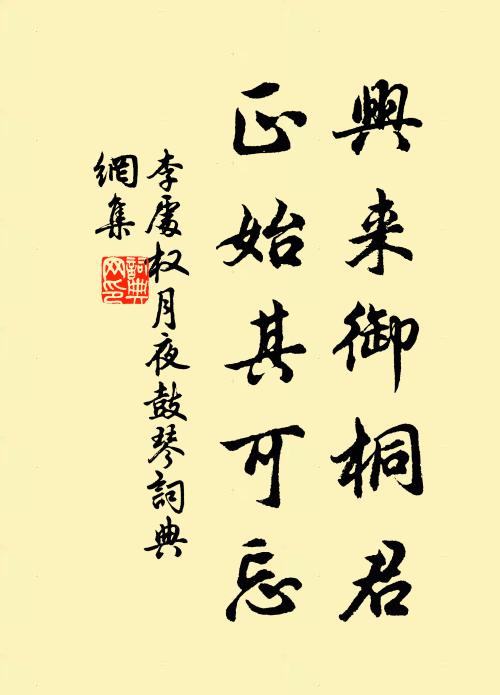 興来御桐君
正始其可忘
李處权月夜鼓琴詞典
網集
詞典網印